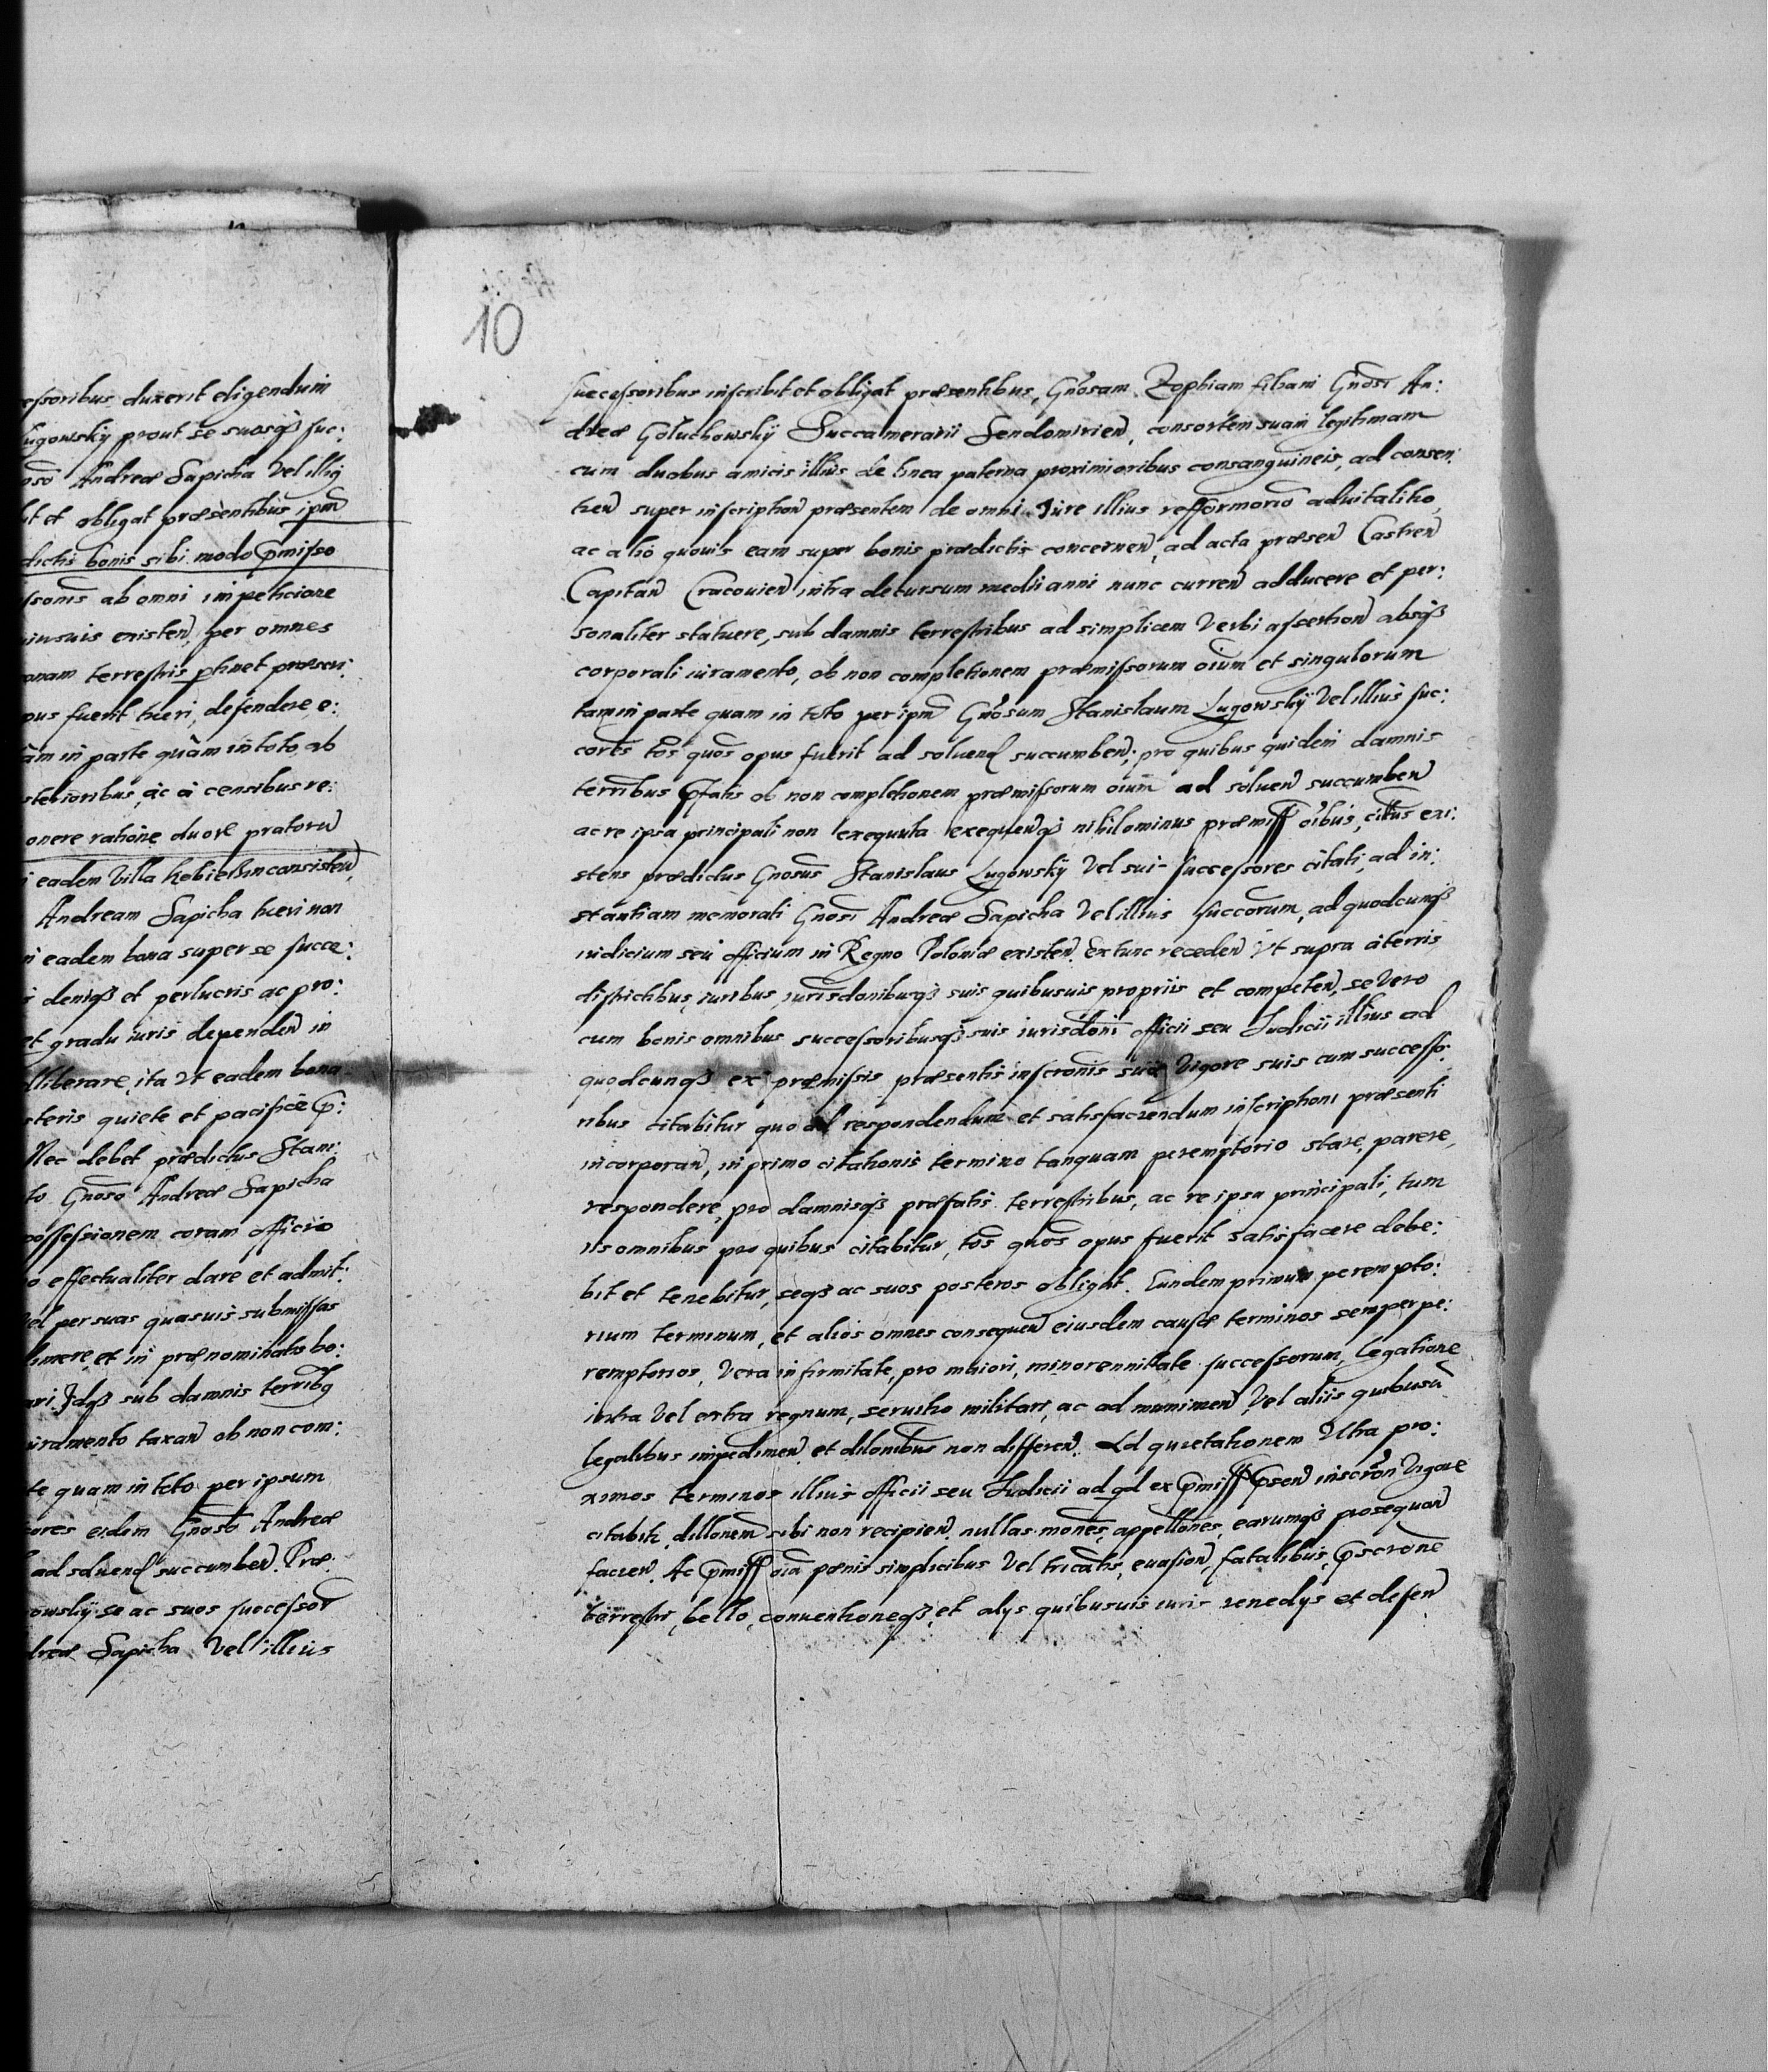 essoribus duxerit eligendum
Lugowsky prout se suosq3 suc:
oso Andreæ Sapieha Vel illiq
it et obligat præsentibus ipm
dictis bonis sibi modo pmisso
sonis ab omni impeticione
iusuis existen, per omnes
onam terrestris ptinet præscri:
pus fuerit tueri, defendere, e:
àm in parte quàm in toto, ab
sterioribus, àc à censibus re:
onere ratione duore pratorū
i eadem Villa Kobielsin consisten,
Andream Sapieha tueri non
i eadem bona super se succe:
i deniq3 et perlucris ac pro:
et gradu iuris dependen in
lliberare, ita Vt eadem bona
steris quiete et pacifice p:
Nec debet prædictus Stani:
to Gnoso Andreæ Sapieha
possessionem coram officio
o effectualiter dare et admit:
el per suas quasuis submissas
timere, et in prænominatis bo:
ari. Idq3 sub damnis terribq
iuramento taxan ob non com:
te quam in toto per ipsum
sores eidem Gnoso Andreæ
ad soluend succumben. Præ:
owsky se ac suos successor
dreæ Sapieha Vel illius
10
successoribus inscribit et obligat præsentibus, Gnosam Zophiam filiam Gnosi An:
dreæ Goluchowsky Succamerarii Sendomirien, consortem suam legitimam
cum duobus amicis illius de linea paterna proximioribus consanguineis, ad consen:
tien super inscription præsentem de omni Iure illius refformorio aduitalitio,
ac alio quouis eam super bonis prædictis concernen, ad acta præsen Castren
Capitan Cracouien intra decursum medii anni nunc curren adducere et per:
sonaliter statuere, sub damnis terrestribus ad simplicem Verbi assertion absq3
corporali iuramento, ob non completionem præmissorum oium et singulorum
tam in parte quam in toto per ipm Gnosum Stanislaum Lugowsky Vel illius suc:
cores tos quos opus fuerit ad soluend succumben; pro quibus quidem damnis
terribus pfatis ob non completionem præmissorum oium ad soluen succumben
ac re ipsa principali non exequuta exequenq3 nihilominus præmiss oibus, citus exi:
stens prædictus Gnosus Stanislaus Lugowsky Vel sui successores citati, ad in:
stantiam memorati Gnosi Andreæ Sapieha Vel illius succorum, ad quodcunq3
iudicium seu officium in Regno Poloniæ existen. Ex tunc receden Vt supra à terris
districtibus, iuribus, iurisdonibusq3 suis quibusuis propriis et competen, se Vero
cum bonis omnibus successoribusq3 suis iurisdoni officii seu Iudicii illius ad
quodcunq3 ex præmissis præsentis inscronis suæ Vigore suis cum successo:
ribus citabitur quo ad respondendum et satisfaciendum inscriptioni præsenti
incorporan, in primo citationis termino tanquam peremptorio stare, parere,
respondere, pro damnisq3 præfatis terrestribus, ac re ipsa principali, tum
iis omnibus pro quibus citabitur, tos quos opus fuerit satisfacere debe:
bit et tenebitur, seq3 ac suos posteros obligat. Eundem primum perempto:
rium terminum, et alios omnes consequen eiusdem causæ terminos semper pe:
remptorios, Vera infirmitate, pro maiori, minorennitate successorum, legatione
intra Vel extra regnum, seruitio militari, ac ad munimen, Vel aliis quibusu
legalibus impedimen, et dilonibus non differen. Ad quietationem Vltra pro:
ximos terminos illius officii seu Iudicii ad qd ex pmiss psen inscron Vigore
citabit, dillonem sibi non recipien nullas mones, appellones, earumq3 prosequon
facien. Ac pmiss oia pænis simplicibus Vel tricatis, euasion, fatalibus, pscrone
terrestri, bello, conuentioneq3, et alys quibusuis iuris remedys et defen